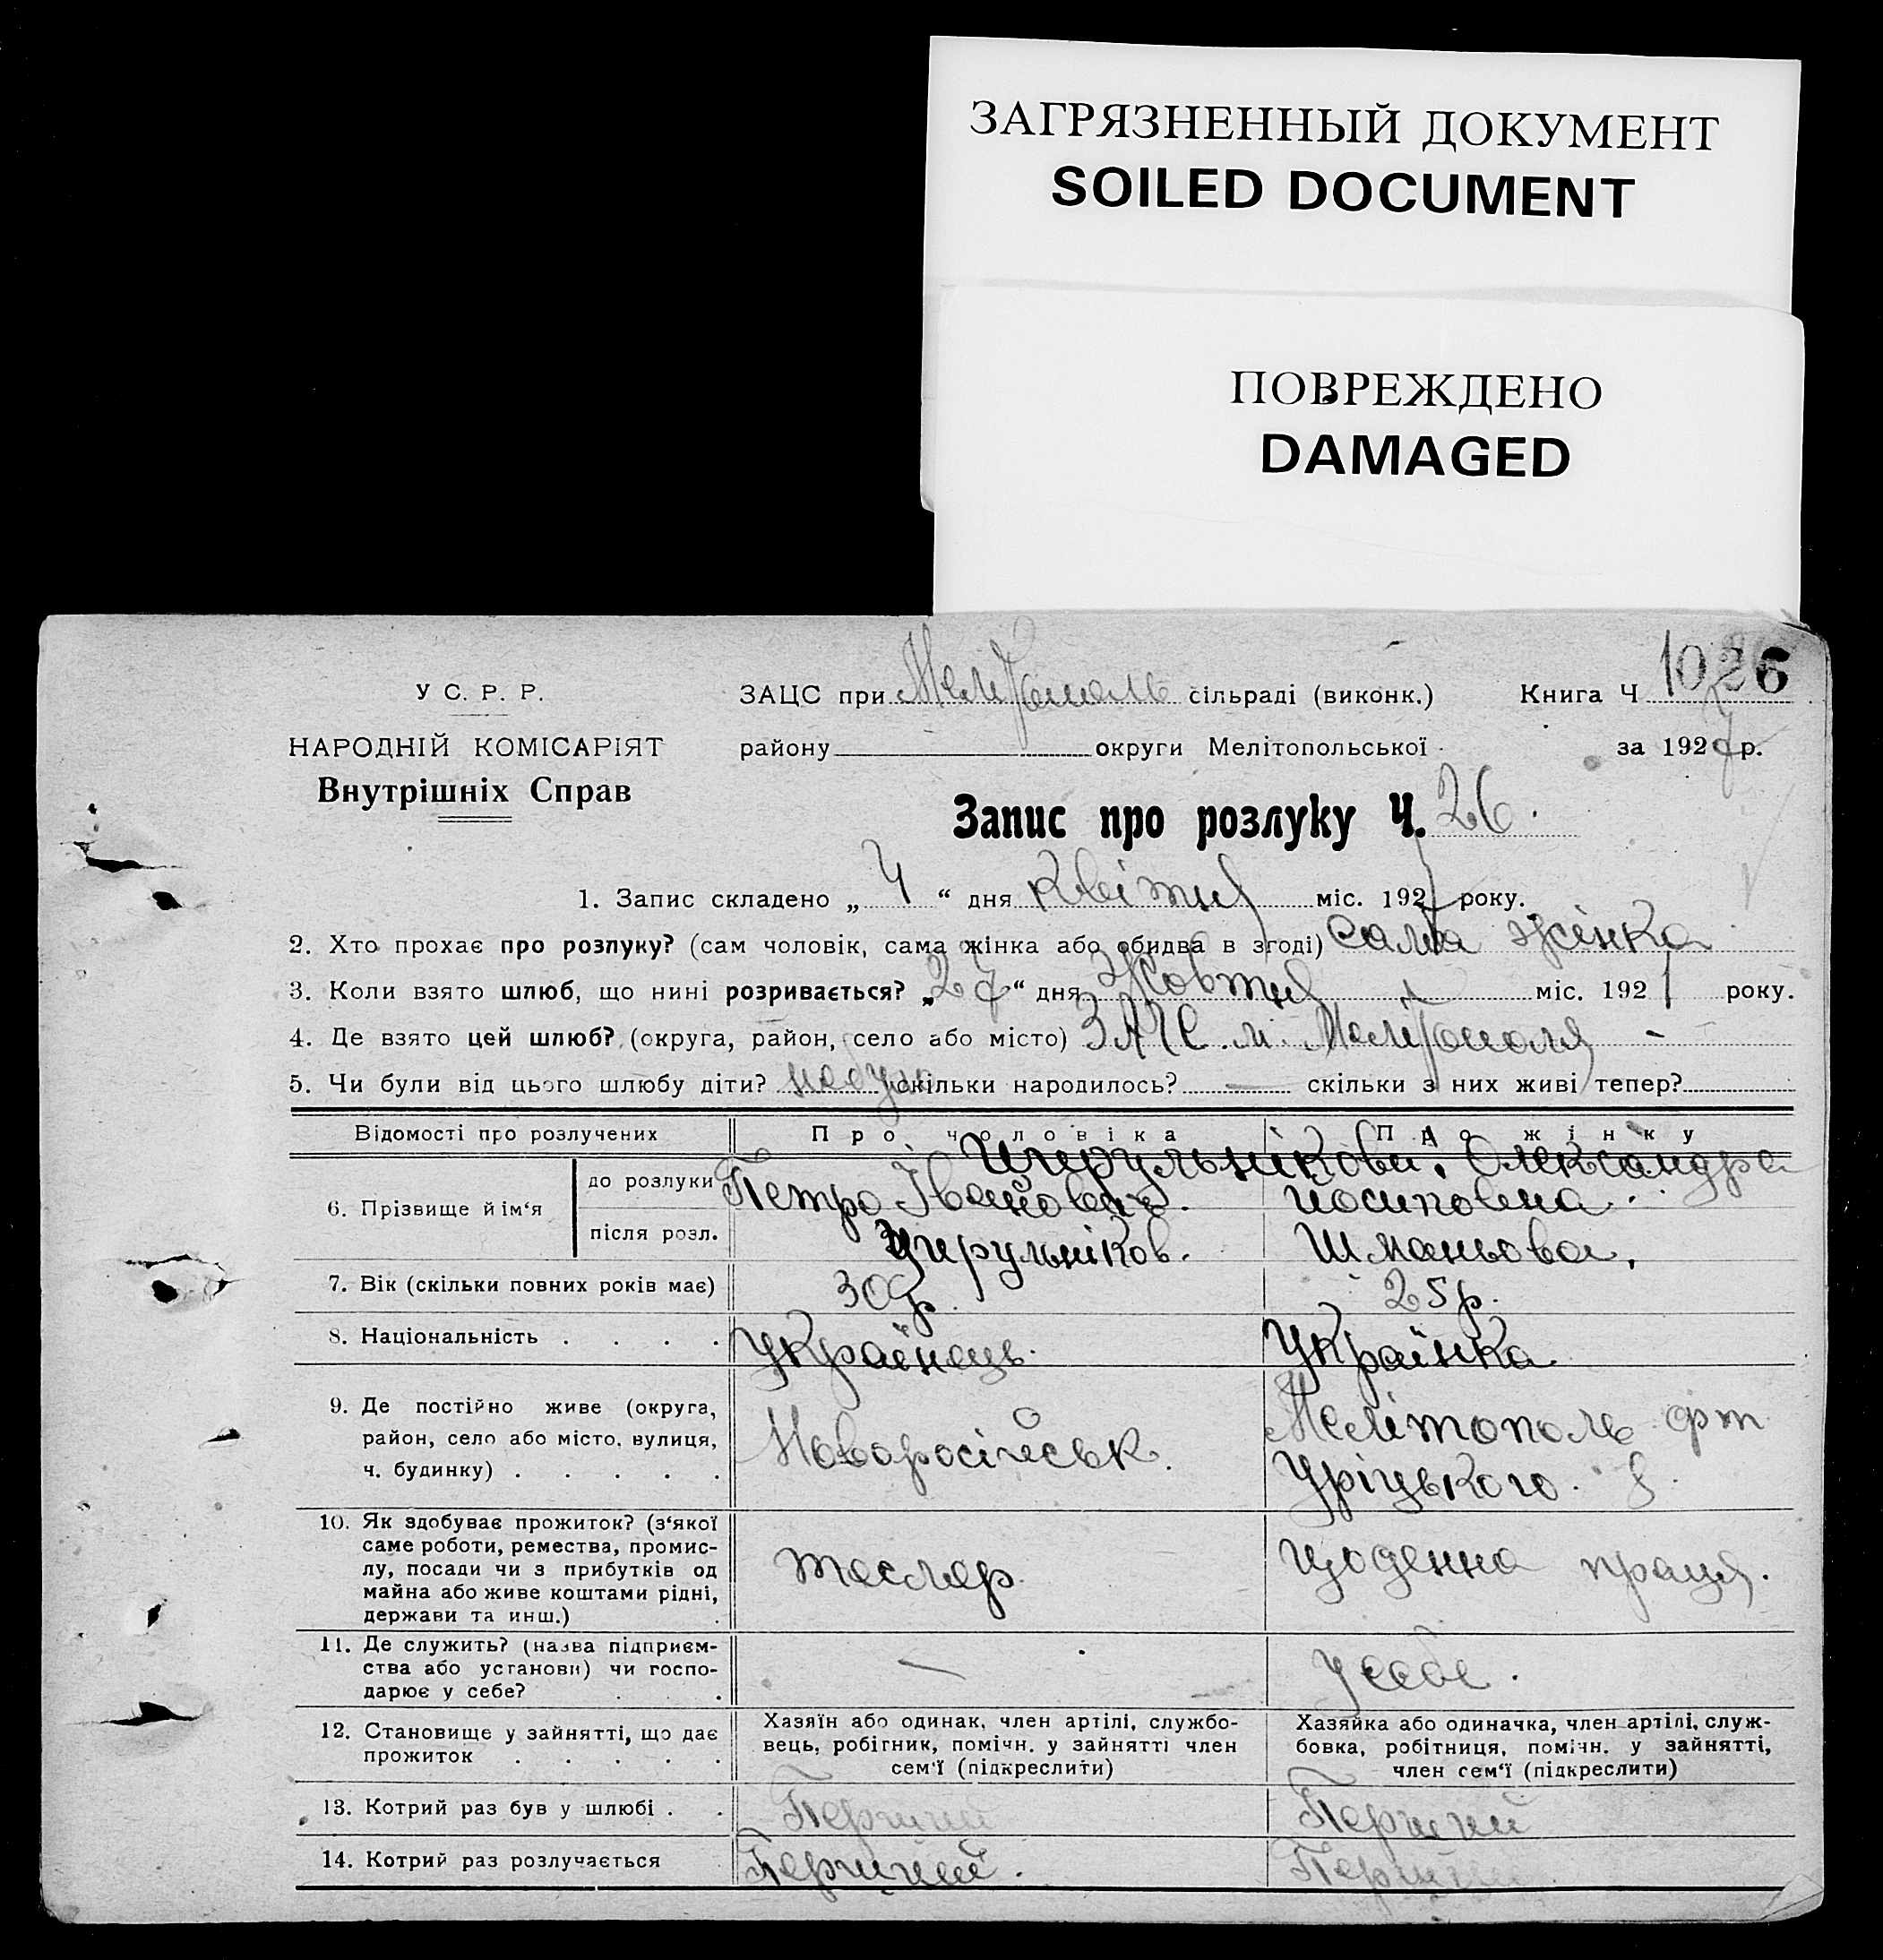 ЗАГРЯЗНЕННЫЙ ДОКУМЕНТ
SOILED DOCUMENT
ПОВРЕЖДЕНО
DAMAGED
У С. Р. Р.
НАРОДНІЙ КОМІСАРІЯТ
Внутрішніх Справ
ЗАЦС при Мелітополь сільраді (виконк.) Книга Ч
району округи Мелітопольської за 1927 р.
Запис про розлуку Ч. 26.
1. Запис складено „ 4 “ дня Квітня міс. 1927 року.
2. Хто прохає про розлуку? (сам чоловік, сама жінка або обидва в згоді) сама жінка
3. Коли взято шлюб, що нині розривається? „27“ дня Жовтня міс. 1921 року.
4. Де взято цей шлюб? (округа, район, село або місто) ЗАГС. м. Мелітополя -
5. Чи були від цього шлюбу діти? небуло скільки народилось? — скільки з них живі тепер?
Відомості про розлучених Про чоловіка Про жінку
6. Прізвище й ім‘я
до розлуки Петро Іванович. Олександра Йосиповна.
після розл. Шманьова.
7. Вік (скільки повних років має) 30 р. 25 р.
8. Національність . . . . Українець. Українка
9. Де постійно живе (округа, район, село або місто, вулиця, ч. будинку) . . . . .
Новоросійськ. Мелітополь
Уріцького. 8.
10. Як здобуває прожиток? (з‘якої
саме роботи, ремества, промис-
лу, посади чи з прибутків од
майна або живе коштами рідні,
держави та инш.)
тесляр. щоденна праця.
11. Де служить? (назва підприєм-
ства або установи) чи госпо-
дарює у себе? . .
— у себе.
12. Становище у зайнятті, що дає
прожиток . . . . .
Хазяїн або одинак, член артілі, службо-
вець, робігник, помічн. у зайнятті член
сем‘ї (підкреслити)
Хазяйка або одиначка, член артілі, служ-
бовка, робітниця, помічн. у зайнятті,
член сем‘ї (підкреслити)
13. Котрий раз був у шлюбі . . Перший Перший
14. Котрий раз розлучається Перший. Перший.